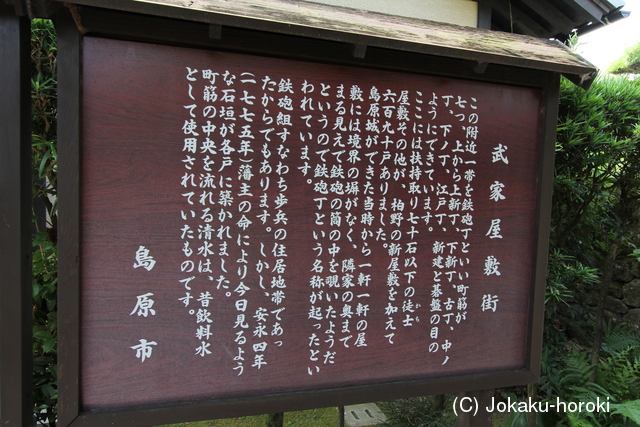 武家屋敷街
この附近一帯を鉄砲丁といい町筋が
七つ、上から上新丁、下新丁、古丁、中ノ
丁、下ノ丁、江戸丁、新建と碁盤の目の
ようにできています。
ここには扶持取り七十石以下の徒士
かち
屋敷その他が、柏野の新屋敷を加えて
六百九十戸ありました。
島原城ができた当時から一軒一軒の屋
敷には境界の塀がなく、隣家の奥まで
まる見えて鉄砲の筒の中を覗いたようだ
というので鉄砲丁という名称が起ったとい
われています。
鉄砲組すなわち歩兵の住居地帯であっ
たからでもあります。しかし、安永四年
(一七七五年)藩主の命により今日見るよう
な石垣が各戸に築かれました。
町筋の中央を流れる清水は、昔飲料水
として使用されていたものです。
島原市
(C) Jokaku-horoki